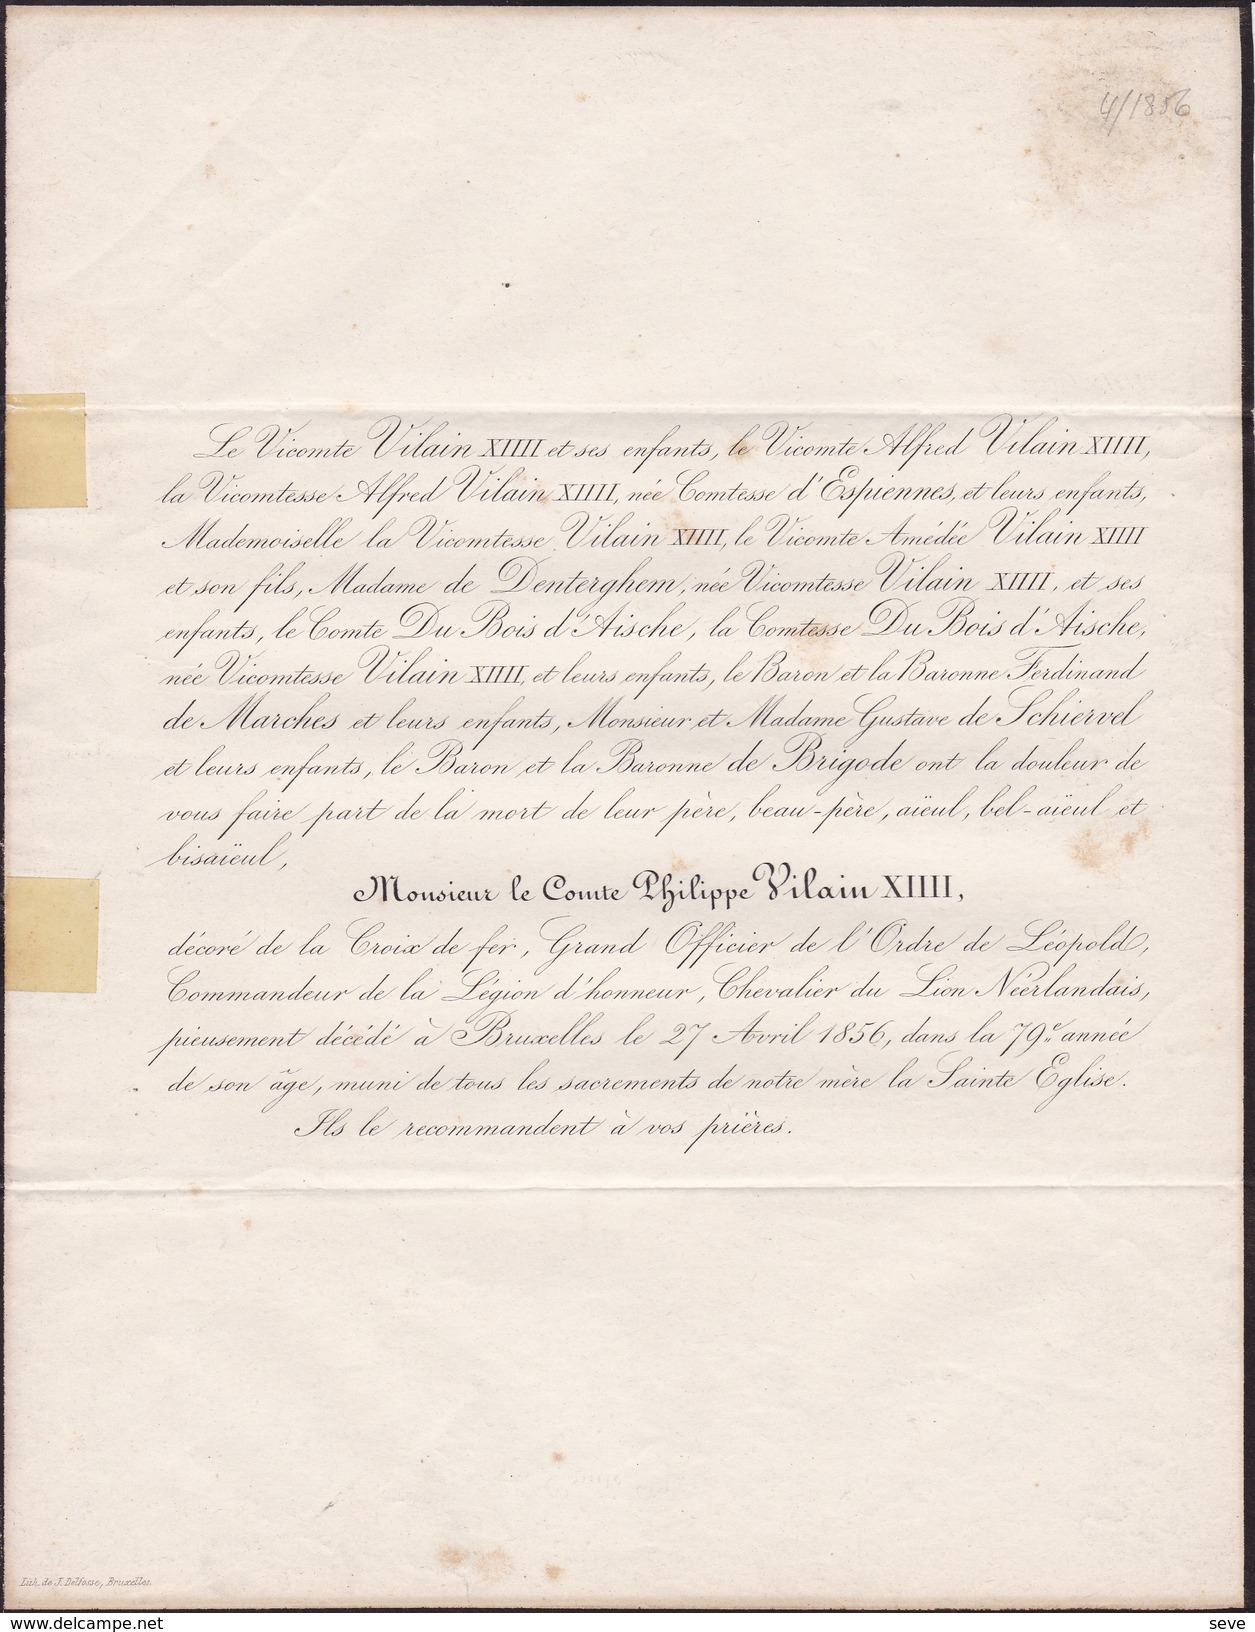 4/1856
Le Vicomte Vilain XIIII et ses enfants, le Vicomte Alfred Vilain XIIII,
la Vicomtesse Alfred Vilain XIIII, née Comtesse d'Espiennes, et leurs enfants,
Mademoiselle la Vicomtesse Vilain XIIII, le Vicomte Amédée Vilain XIIII
et son fils, Madame de Denterghem, née Vicomtesse Vilain XIIII, et ses
enfants, le Comte Du Bois d'Aische, la Comtesse Du Bois d'Aische,
née Vicomtesse Vilain XIIII, et leurs enfants, le Baron et la Baronne Ferdinand
de Marches et leurs enfants, Monsieur et Madame Gustave de Schiervel
et leurs enfants, le Baron et la Baronne de Brigode ont la douleur de
vous faire part de la mort de leur père, beau-père, aïeul, bel-aïeul et
bisaïeul,
Monsieur le Comte Philippe Vilain XIIII,
décoré de la Croix de fer, Grand Officier de l'Ordre de Léopold,
Commandeur de la Légion d'honneur, Chevalier du Lion Néerlandais,
pieusement décédé à Bruxelles le 27 Avril 1856, dans la 79e année
de son âge, muni de tous les sacrements de notre mère la Sainte Eglise.
Ils le recommandent à vos prières.
Lith. de J. Delfosse, Bruxelles.
www.delcampe.net
seve